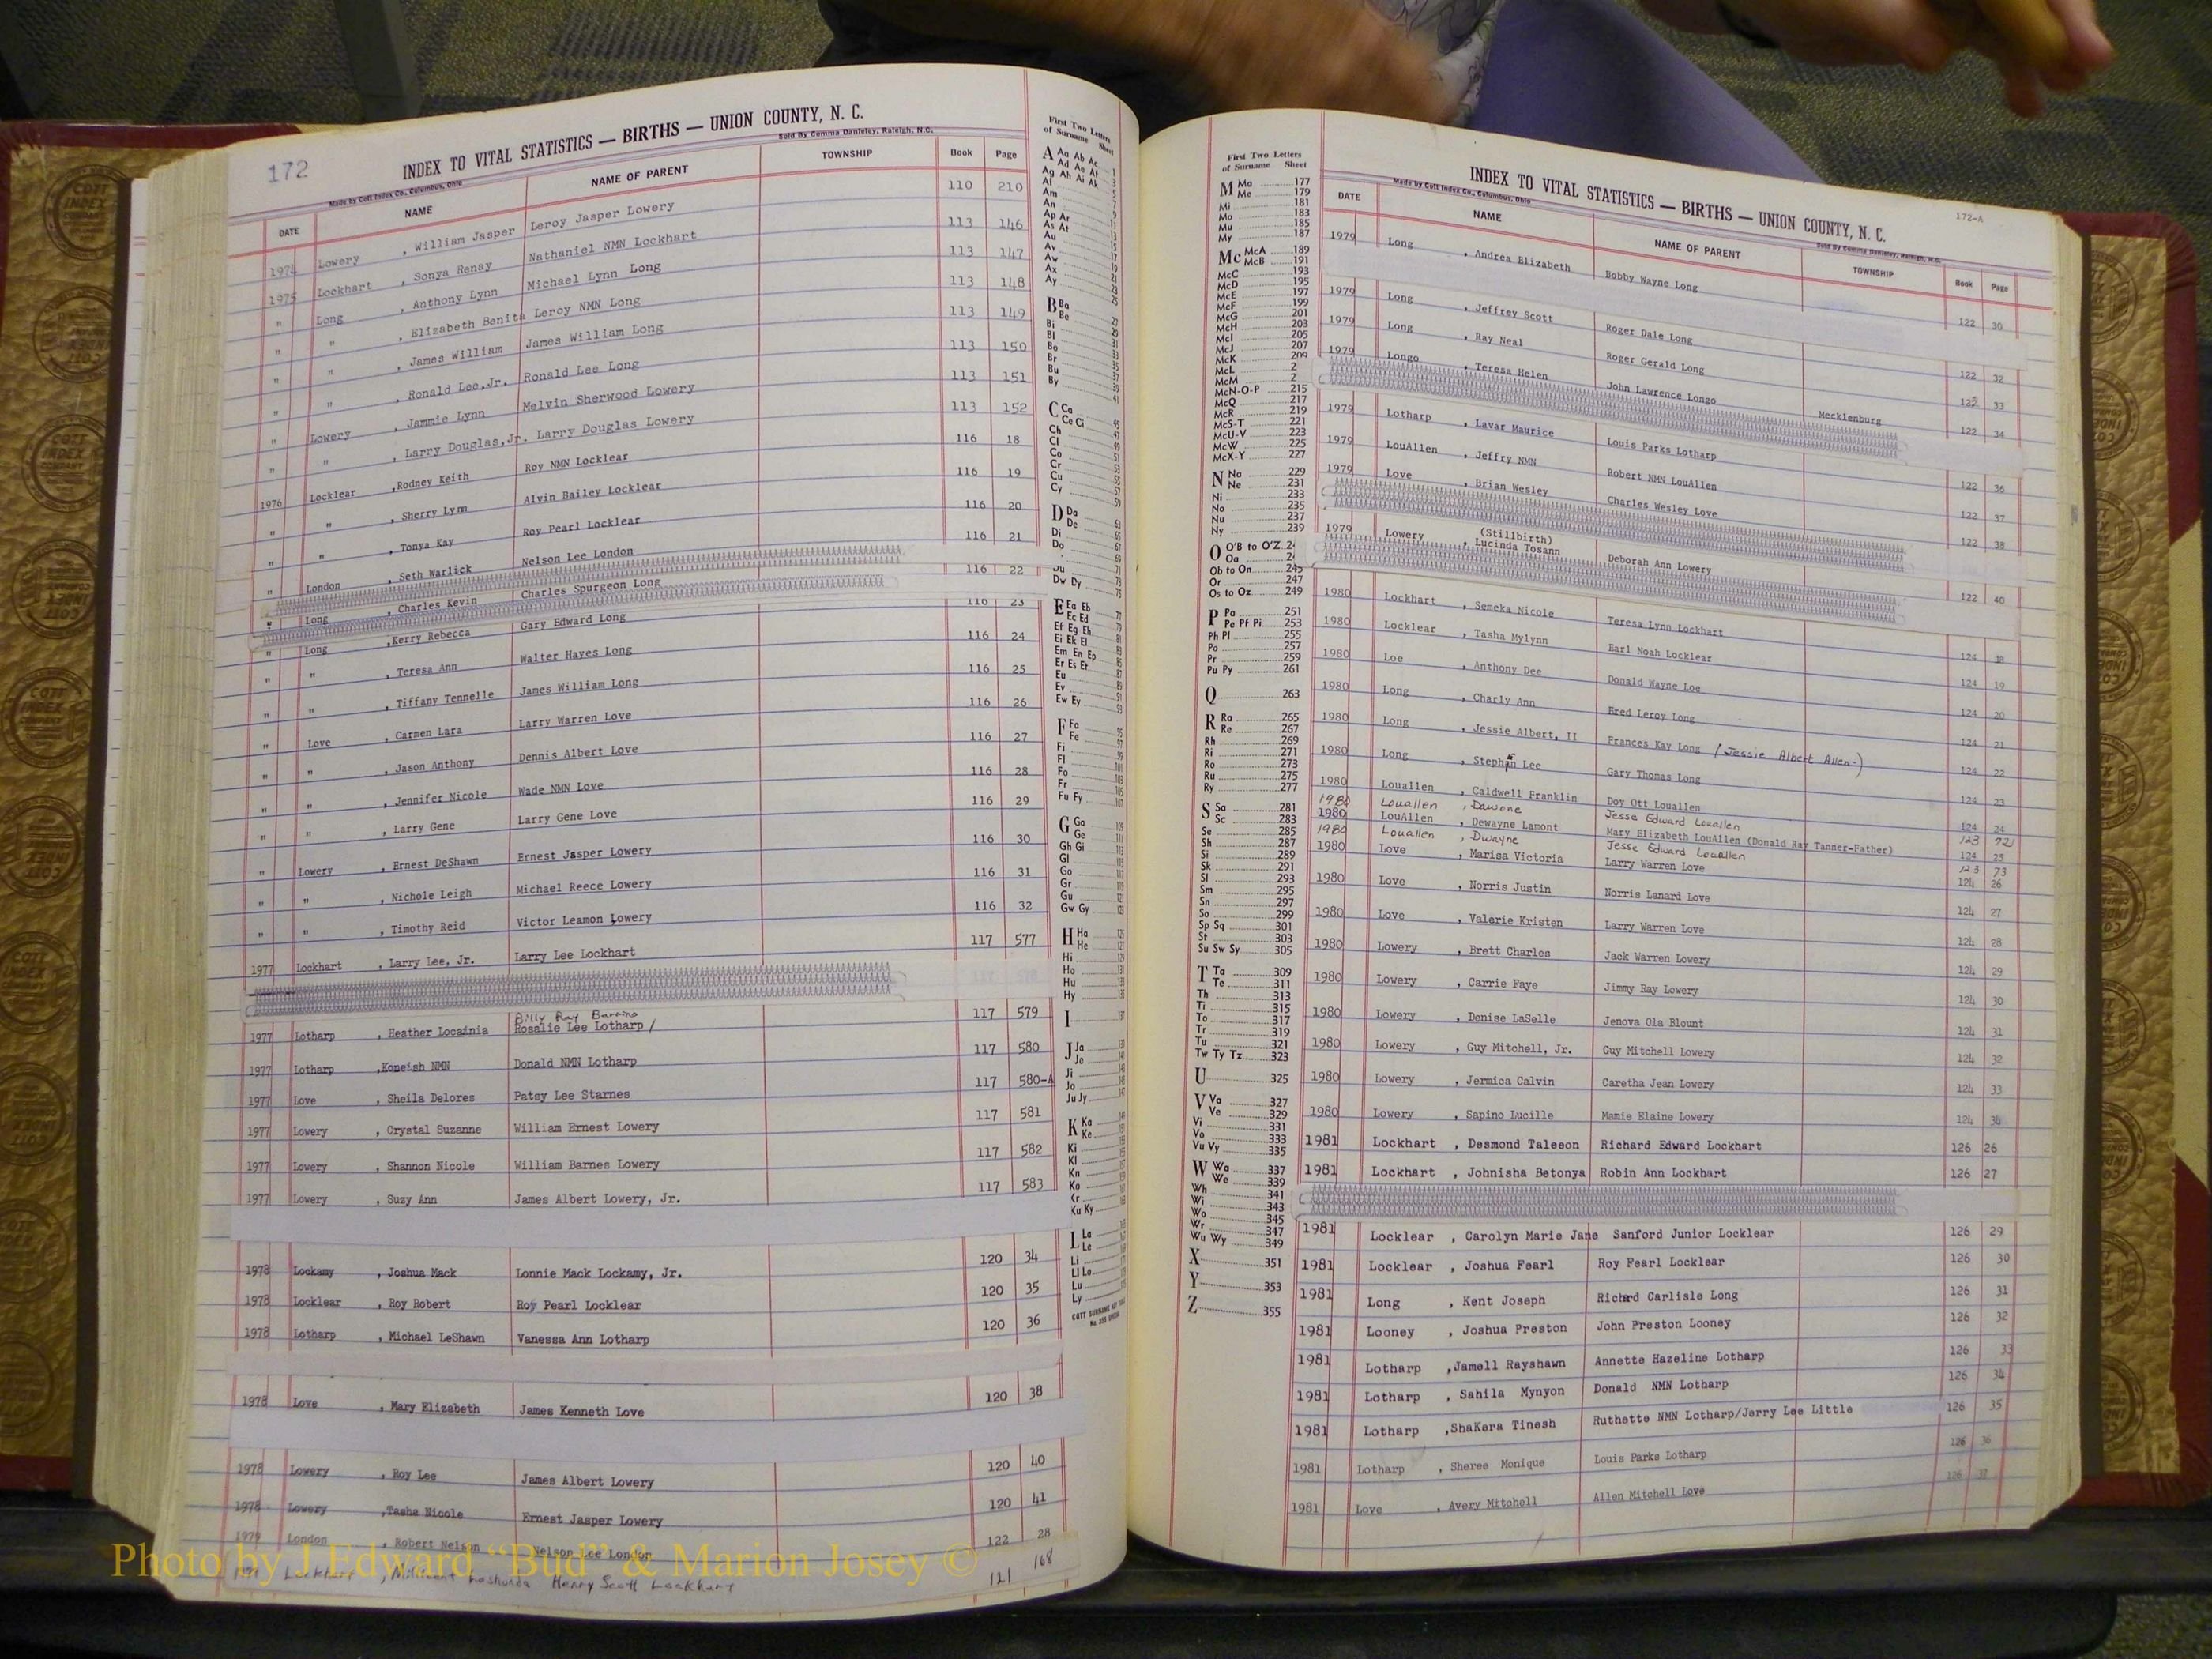 172
INDEX TO VITAL STATISTICS — BIRTHS — UNION COUNTY, N. C.
Made by Cott Index Co., Columbus, Ohio
Sold By Comma Danieley, Raleigh, N.C.
DATE NAME NAME OF PARENT TOWNSHIP Book Page
1974 Lowery , William Jasper Leroy Jasper Lowery 110 210
1975 Lockhart , Sonya Renay Nathaniel NMN Lockhart 113 146
" Long , Anthony Lynn Michael Lynn Long 113 147
" " , Elizabeth Benita Leroy NMN Long 113 148
" " , James William James William Long 113 149
" " , Ronald Lee,Jr. Ronald Lee Long 113 150
" Lowery , Jammie Lynn Melvin Sherwood Lowery 113 151
" " , Larry Douglas,Jr. Larry Douglas Lowery 113 152
1976 Locklear ,Rodney Keith Roy NMN Locklear 116 18
" " , Sherry Lynn Alvin Bailey Locklear 116 19
" " , Tonya Kay Roy Pearl Locklear 116 20
" London , Seth Warlick Nelson Lee London 116 21
" Long , Charles Kevin Charles Spurgeon Long 116 22
" Long ,Kerry Rebecca Gary Edward Long 116 23
" " , Teresa Ann Walter Hayes Long 116 24
" " , Tiffany Tennelle James William Long 116 25
" Love , Carmen Lara Larry Warren Love 116 26
" " , Jason Anthony Dennis Albert Love 116 27
" " , Jennifer Nicole Wade NMN Love 116 28
" " , Larry Gene Larry Gene Love 116 29
" Lowery , Ernest DeShawn Ernest Jasper Lowery 116 30
" " , Nichole Leigh Michael Reece Lowery 116 31
" " , Timothy Reid Victor Leamon Lowery 116 32
1977 Lockhart , Larry Lee, Jr. Larry Lee Lockhart 117 577
Billy Ray
1977 Lotharp , Heather Locainia Rosalie Lee Lotharp / 117 579
1977 Lotharp ,Koneish NMN Donald NMN Lotharp 117 580
1977 Love , Sheila Delores Patsy Lee Starnes 117 580-A
1977 Lowery , Crystal Suzanne William Ernest Lowery 117 581
1977 Lowery , Shannon Nicole William Barnes Lowery 117 582
1977 Lowery , Suzy Ann James Albert Lowery, Jr. 117 583
1978 Lockamy , Joshua Mack Lonnie Mack Lockamy, Jr. 120 34
1978 Locklear , Roy Robert Roy Pearl Locklear 120 35
1978 Lotharp , Michael LeShawn Vanessa Ann Lotharp 120 36
1978 Love , Mary Elizabeth James Kenneth Love 120 38
1978 Lowery , Roy Lee James Albert Lowery 120 40
1978 Lowery ,Tasha Nicole Ernest Jasper Lowery 120 41
1979 London , Robert Nelson Nelson Lee London 122 28
1979 Lockhart , Millicent Lashunda Henry Scott Lockhart 121 168
Photo by J.Edward "Bud" & Marion Josey ©
First Two Letters
of Surname Sheet
A Aa Ab Ac
Ad Ae Af
Ag Ah Ai Ak
Al
Am
An
Ap Ar
As At
Au
Av
Aw
Ax
Ay
B Ba
Be
Bi
Bl
Bo
Br
Bu
By
C Ca
Ce Ci
Ch
Cl
Co
Cr
Cu
Cy
D Da
De
Di
Do
Du
Dw Dy
E Ea Eb
Ec Ed
Ef Eg Eh
Ei Ek El
Em En Ep
Er Es Et
Eu
Ev
Ew Ey
F Fa
Fe
Fi
Fl
Fo
Fr
Fu Fy
G Ga
Ge
Gh Gi
Gl
Go
Gr
Gu
Gw Gy
H Ha
He
Hi
Ho
Hu
Hy
I
J Ja
Je
Ji
Jo
Ju Jy
K Ka
Ke
Ki
Kl
Kn
Ko
Kr
Ku Ky
L La
Le
Li
Ll Lo
Lu
Ly
First Two Letters
of Surname Sheet
M Ma 177
Me 179
Mi 181
Mo 183
Mu 185
My 187
Mc McA 189
McB 191
McC 193
McD 195
McE 197
McF 199
McG 201
McH 203
McI 205
McJ 207
McK 209
McL 2
McM 2
McN-O-P 215
McQ 217
McR 219
McS-T 221
McU-V 223
McW 225
McX-Y 227
N Na 229
Ne 231
Ni 233
No 235
Nu 237
Ny 239
O O'B to O'Z 24
Oa 24
Ob to On 245
Or 247
Os to Oz 249
P Pa 251
Pe Pf Pi 253
Ph Pl 255
Po 257
Pr 259
Pu Py 261
Q 263
R Ra 265
Re 267
Rh 269
Ri 271
Ro 273
Ru 275
Ry 277
S Sa 281
Sc 283
Se 285
Sh 287
Si 289
Sk 291
Sl 293
Sm 295
Sn 297
So 299
Sp Sq 301
St 303
Su Sw Sy 305
T Ta 309
Te 311
Th 313
Ti 315
To 317
Tr 319
Tu 321
Tw Ty Tz 323
U 325
V Va 327
Ve 329
Vi 331
Vo 333
Vu Vy 335
W Wa 337
We 339
Wh 341
Wi 343
Wo 345
Wr 347
Wu Wy 349
X 351
Y 353
Z 355
172-A
INDEX TO VITAL STATISTICS — BIRTHS — UNION COUNTY, N. C.
Made by Cott Index Co., Columbus, Ohio
Sold By Comma Danieley, Raleigh, N.C.
DATE NAME NAME OF PARENT TOWNSHIP Book Page
1979 Long , Andrea Elizabeth Bobby Wayne Long 122 30
1979 Long , Jeffrey Scott Roger Dale Long 122 32
1979 Long , Ray Neal Roger Gerald Long 122 33
1979 Longo , Teresa Helen John Lawrence Longo Mecklenburg 122 34
1979 Lotharp , Lavar Maurice Louis Parks Lotharp 122 36
1979 LouAllen , Jeffry NMN Robert NMN LouAllen 122 37
1979 Love , Brian Wesley Charles Wesley Love 122 38
(Stillbirth)
1979 Lowery , Lucinda Tosann Deborah Ann Lowery 122 40
1980 Lockhart , Semeka Nicole Teresa Lynn Lockhart 124 18
1980 Locklear , Tasha Mylynn Earl Noah Locklear 124 19
1980 Loe , Anthony Dee Donald Wayne Loe 124 20
1980 Long , Charly Ann Fred Leroy Long 124 21
1980 Long , Jessie Albert, II Frances Kay Long (Jessie Albert Allen-) 124 22
1980 Long , Stephen Lee Gary Thomas Long 124 23
1980 Louallen , Caldwell Franklin Doy Ott Louallen 124 24
1980 Louallen , Dawone Jesse Edward Louallen 123 721
1980 LouAllen , Dewayne Lamont Mary Elizabeth LouAllen (Donald Ray Tanner-Father) 124 25
1980 Louallen , Dwayne Jesse Edward Louallen 123 73
1980 Love , Marisa Victoria Larry Warren Love 124 26
1980 Love , Norris Justin Norris Lanard Love 124 27
1980 Love , Valerie Kristen Larry Warren Love 124 28
1980 Lowery , Brett Charles Jack Warren Lowery 124 29
1980 Lowery , Carrie Faye Jimmy Ray Lowery 124 30
1980 Lowery , Denise LaSelle Jenova Ola Blount 124 31
1980 Lowery , Guy Mitchell, Jr. Guy Mitchell Lowery 124 32
1980 Lowery , Jermica Calvin Caretha Jean Lowery 124 33
1980 Lowery , Sapino Lucille Mamie Elaine Lowery 124
1981 Lockhart , Desmond Taleeon Richard Edward Lockhart 126 26
1981 Lockhart , Johnisha Betonya Robin Ann Lockhart 126 27
1981 Locklear , Carolyn Marie Jane Sanford Junior Locklear 126 29
1981 Locklear , Joshua Pearl Roy Pearl Locklear 126 30
1981 Long , Kent Joseph Richard Carlisle Long 126 31
1981 Looney , Joshua Preston John Preston Looney 126 32
1981 Lotharp ,Jamell Rayshawn Annette Hazeline Lotharp 126 33
1981 Lotharp , Sahila Mynyon Donald NMN Lotharp 126 34
1981 Lotharp ,ShaKera Tinesh Ruthette NMN Lotharp/Jerry Lee Little 126 35
1981 Lotharp , Sheree Monique Louis Parks Lotharp 126 36
1981 Love , Avery Mitchell Allen Mitchell Love 126 37